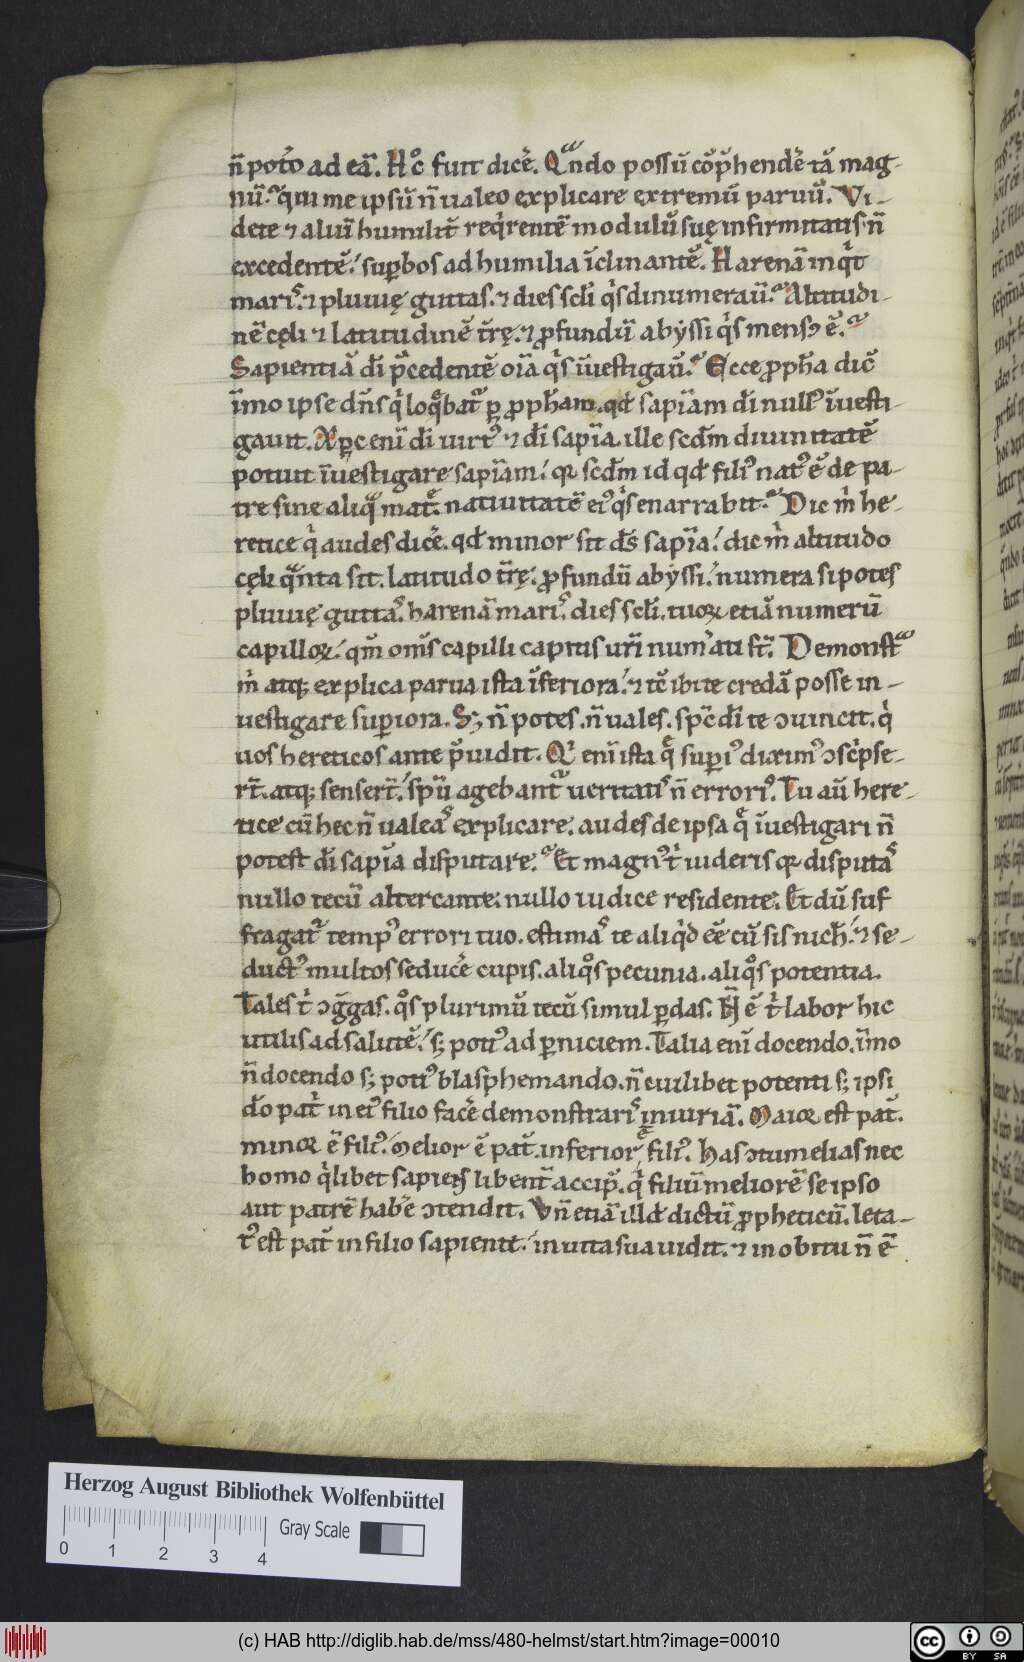 n̄ potō ad eā. Hoc̄ fuit dicē. Qn̄do possū cōp̄hendē tā mag-
nū. qui me ipsū n̄ ualeo explicare extremū paruū. Vi-
dete ⁊ aliū humilit̄ reqⁱrentē modulū suę infirmitatis n̄
excedentē. suꝑbos ad humilia īclinantē. Harenā inqⁱt
maris. ⁊ pluuię guttas. ⁊ dies scl̄i qⁱs dinumerauī. Altitudi-
nē cęli ⁊ latitudinē t̄rę. ⁊ ꝓfundū abẏssi qⁱs mensꝰ ē.
Sapientiā dī p̄cedentē oīa qⁱs īuestigauī. Ecce ꝓph̄a dic̄
īmo ipse dn̄s qⁱ loq̄bat ꝑ ꝓph̄am. qd̄ sapīam dī nullꝰ īuesti-
gauit. Xp̄c enī dī uirtꝰ ⁊ dī sapīa. ille scd̄m diuinitatē
potuit īuestigare sapīam. qꝛ scd̄m id qd̄ filiꝰ natꝰ ē de pa-
tre sine aliqᵃ mat̄. natiuitatē eiꝰ qⁱs enarrabit. Dic mⁱ he-
retice qⁱ audes dicē. qd̄ minor sit dī sapīa. dic mⁱ altitudo
cęli qᵃnta sit. latitudo t̄rę. ꝓfundū abẏssi. numera si potes
pluuię guttas. harenā maris. dies scl̄i. tuoꝝ etiā numerū
capilloꝝ. qm̄ om̄s capilli capitis ur̄i num̄ati st̄. Demonst̄
mⁱ atqꝫ explica parua ista īferiora. ⁊ tc̄ ibi te credā posse in-
uestigare suꝑiora. Sꝫ n̄ potes. n̄ uales. spc̄ dī te ↄuincit. qⁱ
uos hereticos ante p̄uidit. Qⁱ enī ista q̄ suꝑiꝰ diximꝰ ↄsc̄pse-
rt̄. atqꝫ sensert̄. spū agebant̄ ueritatis n̄ erroriꝰ. Tu aū here-
tice cū hec n̄ ualeas explicare. audes de ipsa q̄ īuestigari n̄
potest dī sapīa disputare. Et magnꝰ tⁱ uideris qꝛ disputas
nullo tecū altercante. nullo iudice residente. Et dū suf
fragat̄ tempꝰ errori tuo. estimas te aliqⁱd eē cū sis nich̄. ⁊ se-
ductꝰ multos seducē cupis. aliqᵒs pecunia. aliqᵒs potentia.
Tales tⁱ ↄḡgas. qᵒs plurimū tecū simul ꝑdas. N̄ ē tⁱ labor hic
utilis ad salutē. sꝫ potiꝰ ad ꝑniciem. Talia enī docendo. īmo
n̄ docendo sꝫ potiꝰ blasphemando. n̄ cuilibet potenti sꝫ ipsi
dō pat̄ in eiꝰ filio facē demonstraris iniuriā. Maioꝛ est pat̄.
minoꝛ ē filiꝰ. Melior ē pat̄. inferior ē filiꝰ. Has ↄtumelias nec
homo qⁱlibet sapiens libent̄ accip̄. qⁱ filiū meliorē se ipso
aut patrē habē ↄtendit. Vn̄ etiā illd̄ dictū ꝓpheticū. leta-
tꝰ est pat̄ in filio sapiente. in uita sua uidit. ⁊ in obitu n̄ ē
Herzog August Bibliothek Wolfenbüttel
Gray Scale
0 1 2 3 4
(c) HAB http://diglib.hab.de/mss/480-helmst/start.htm?image=00010
cc BY SA